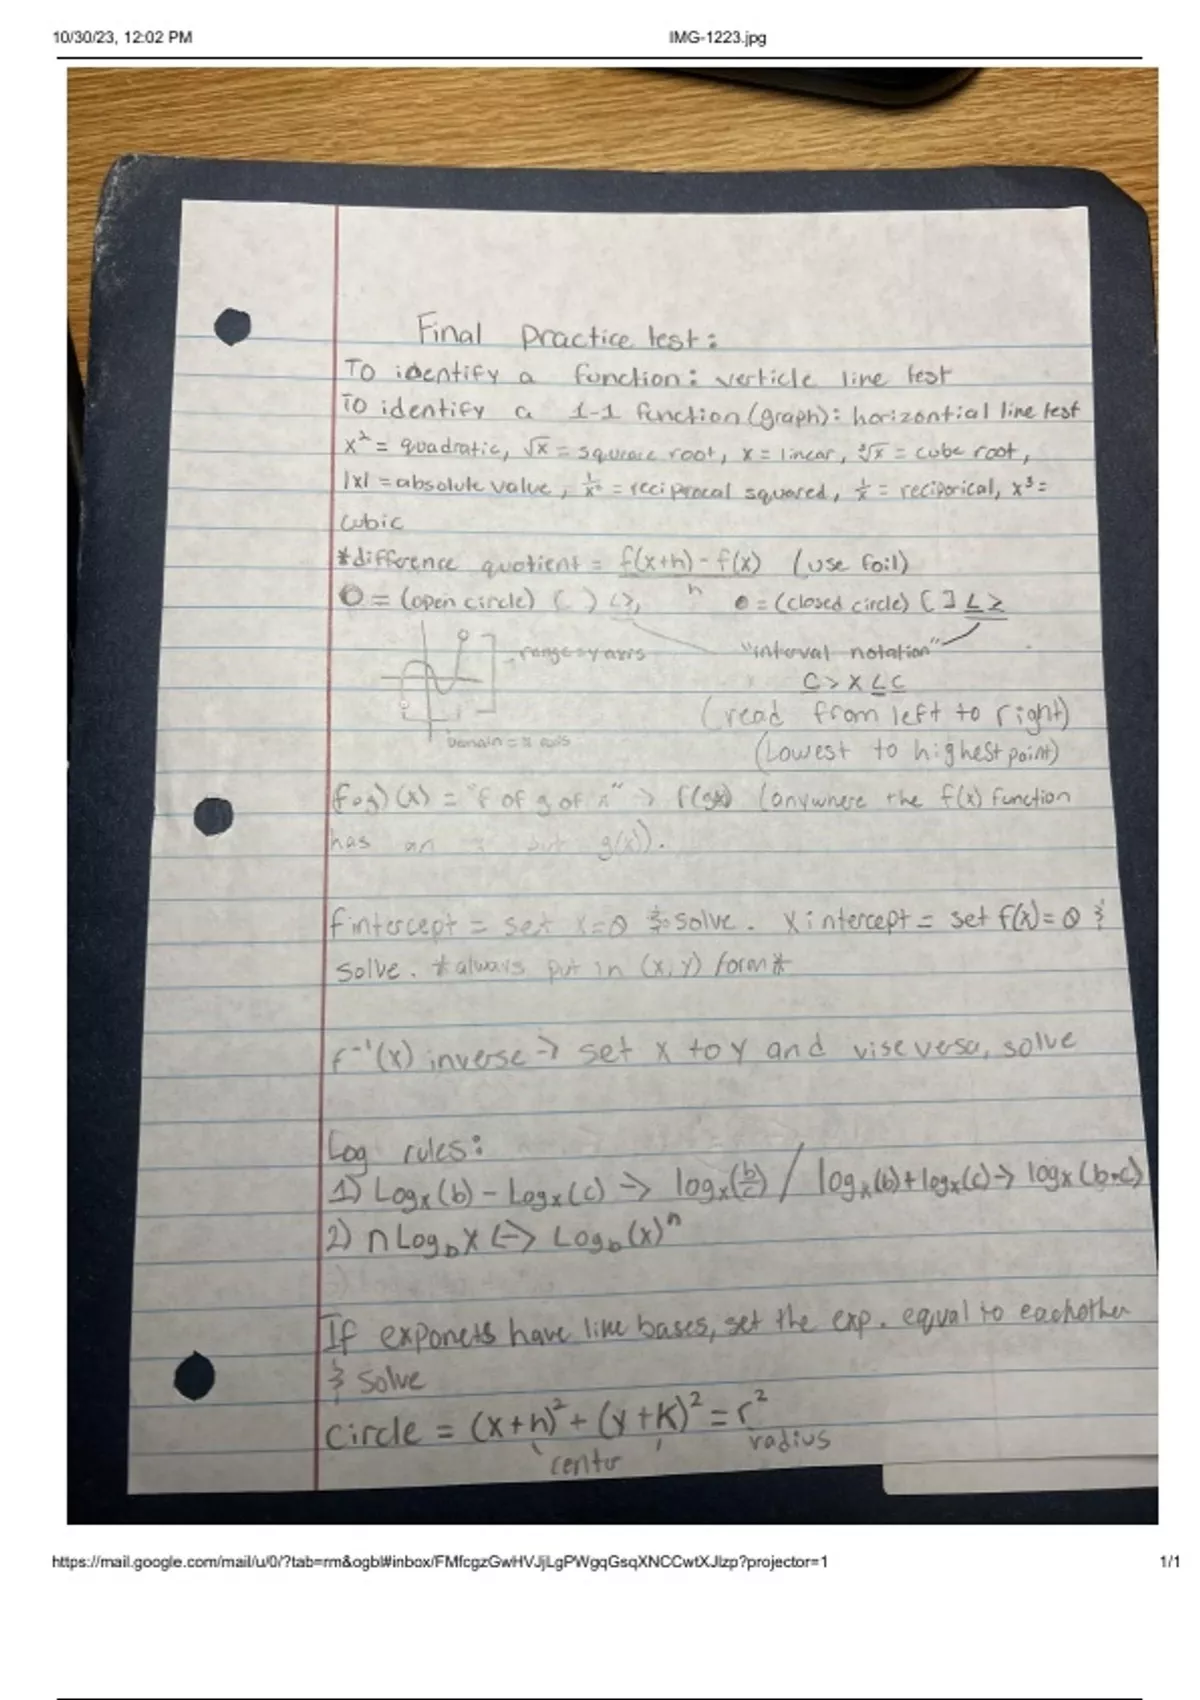 10/30/23, 12:02 PM IMG-1223.jpg
Final practice test:
To identify a function: verticle line test
To identify a 1-1 function (graph): horizontial line test
x² = quadratic, √x = square root, x = linear, ∛x = cube root,
|x| = absolute value, 1/x² = reciprocal squared, 1/x = reciporical, x³ =
cubic
*difference quotient = f(x+h) - f(x) / h (use foil)
O = (open circle) ( ) <>, ● = (closed circle) [ ] ≤ ≥
range = y axis "interval notation"
C > X ≤ C
(read from left to right)
Domain = x axis (Lowest to highest point)
(f∘g)(x) = "f of g of x" → f(g(x)) (anywhere the f(x) function
has an x put g(x)).
f intercept = set x=0 & solve. x intercept = set f(x)=0 &
solve. *always put in (x,y) form*
f⁻¹(x) inverse → set x to y and vise versa, solve
Log rules:
1) Logₓ(b) - Logₓ(c) → logₓ(b/c) / logₓ(b) + logₓ(c) → logₓ(b•c)
2) n Log_b X ↔ Log_b (x)ⁿ
If exponets have like bases, set the exp. equal to eachother
& solve
circle = (x+h)² + (y+k)² = r²
center radius
https://mail.google.com/mail/u/0/?tab=rm&ogbl#inbox/FMfcgzGwHVJjLgPWgqGsqXNCCwtXJlzp?projector=1 1/1